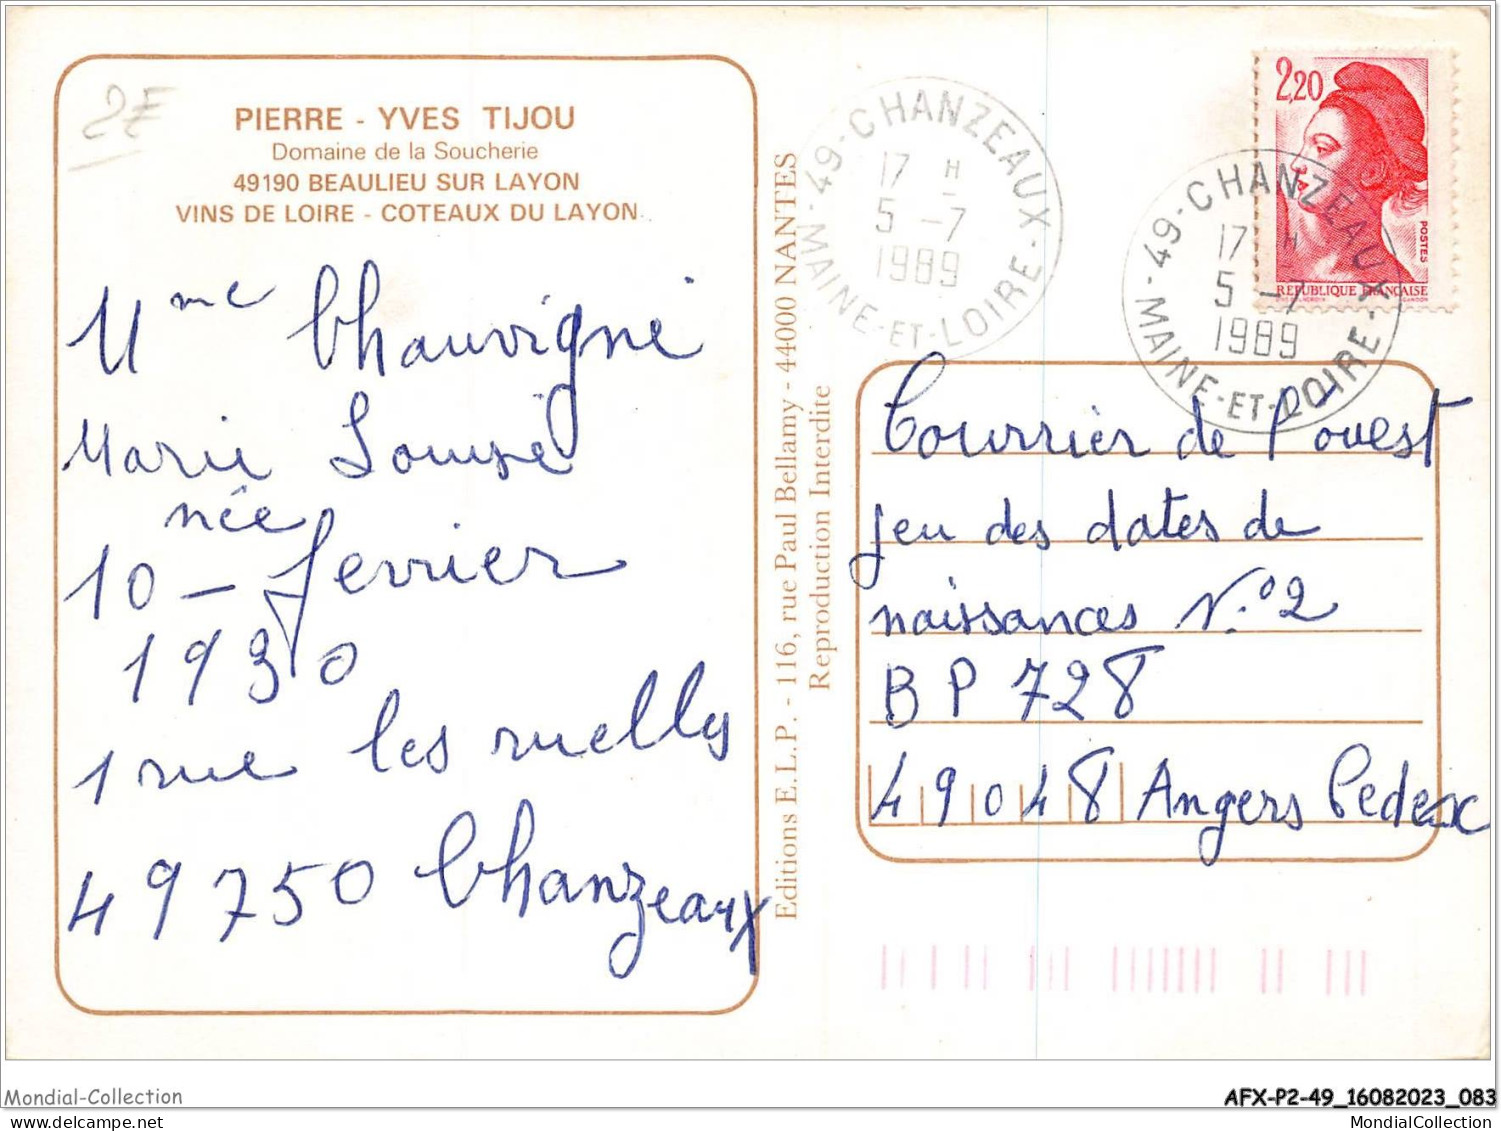 2F
PIERRE - YVES TIJOU
Domaine de la Soucherie
49190 BEAULIEU SUR LAYON
VINS DE LOIRE - COTEAUX DU LAYON
Mme Chauvigné
Marie Louise
née
10 - fevrier
1930
1 rue les ruelles
49750 Chanzeaux
Editions E.L.P. - 116, rue Paul Bellamy - 44000 NANTES
Reproduction Interdite
49 - CHANZEAUX -
17 H
5 - 7
1989
MAINE-ET-LOIRE
2,20
POSTES
REPUBLIQUE FRANÇAISE
49 - CHANZEAUX -
17 H
5 - 7
1989
MAINE-ET-LOIRE
Courrier de l'ouest
jeu des dates de
naissances N°2
BP 728
49048 Angers Cedex
Mondial-Collection
AFX-P2-49_16082023_083
MondialCollection